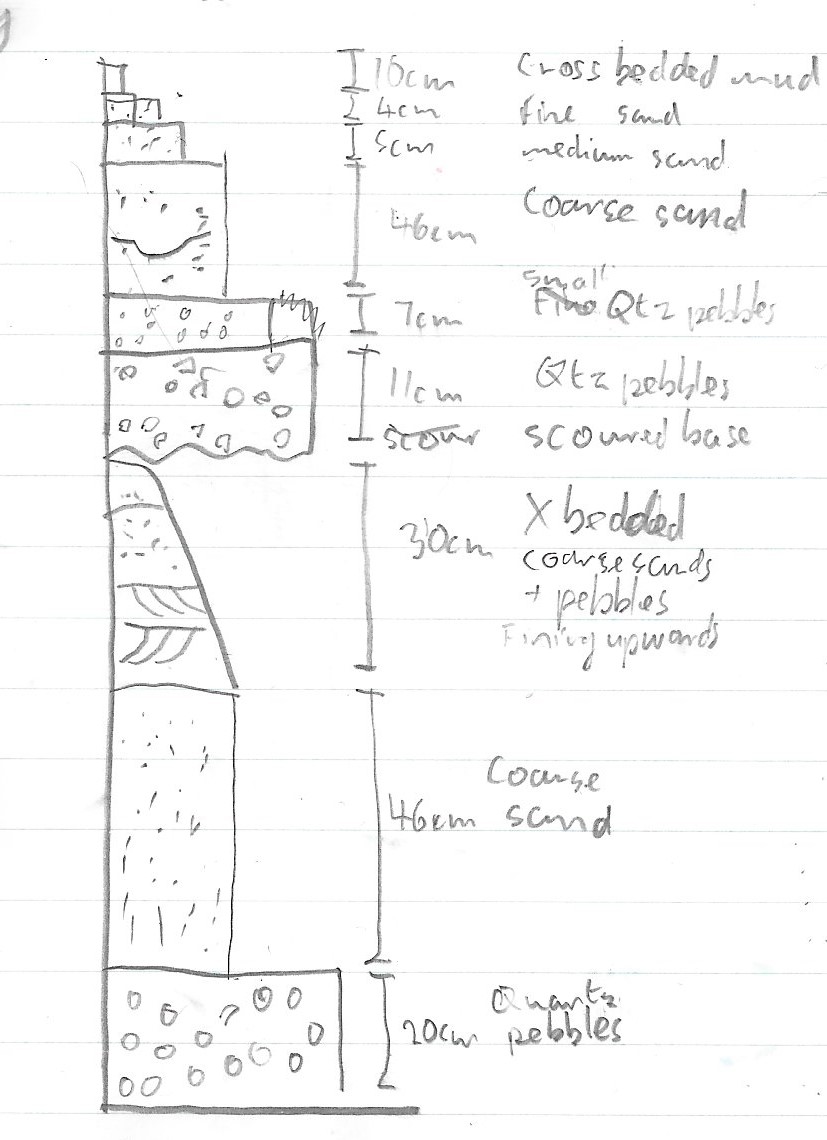 10cm Cross bedded mud
4cm fine sand
5cm medium sand
46cm Coarse sand
small
7cm Fine Qtz pebbles
11cm Qtz pebbles
scour scoured base
30cm X bedded
coarse sands
+ pebbles
Fining upwards
Coarse
46cm sand
Quartz
20cm pebbles